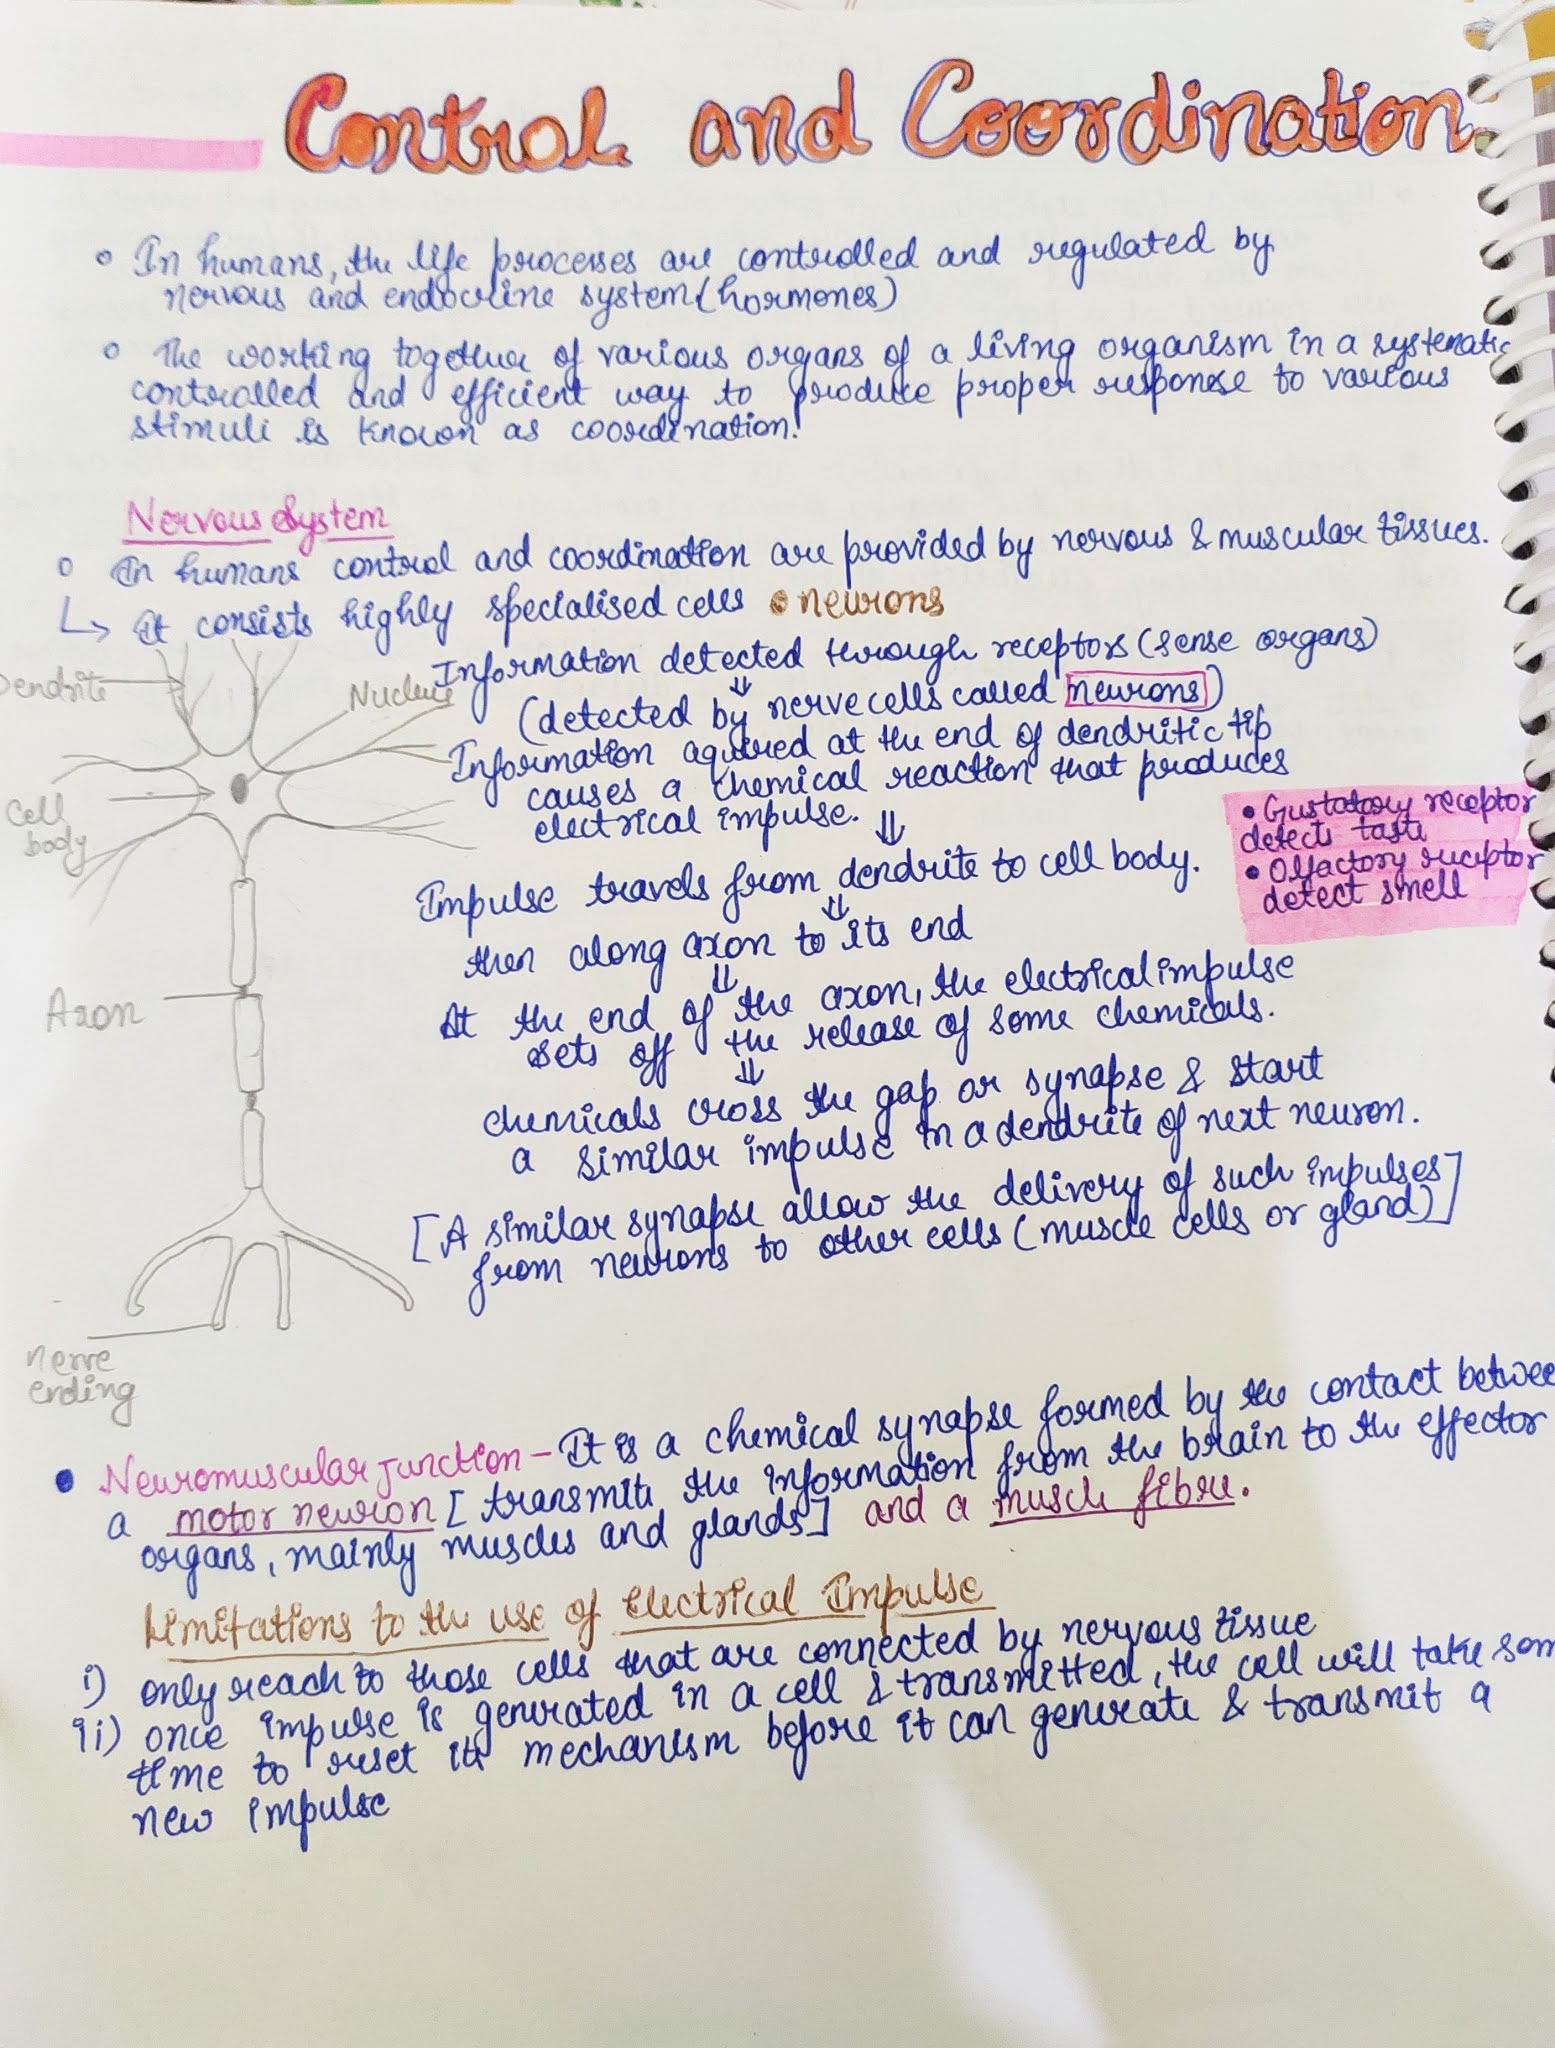 Control and Coordination.
• In humans, the life processes are controlled and regulated by
nervous and endocrine system (hormones)
• The working together of various organs of a living organism in a systematic
controlled and efficient way to produce proper response to various
stimuli is known as coordination.
Nervous System
• In humans control and coordination are provided by nervous & muscular tissues.
↳ It consists highly specialised cells • neurons
Information detected through receptors (sense organs)
⇓
(detected by nerve cells called neurons)
Information aquired at the end of dendritic tip
causes a chemical reaction that produces
electrical impulse.
⇓
Impulse travels from dendrite to cell body.
⇓
then along axon to its end
⇓
At the end of the axon, the electrical impulse
sets off the release of some chemicals.
⇓
chemicals cross the gap or synapse & start
a similar impulse in a dendrite of next neuron.
[A similar synapse allow the delivery of such impulses
from neurons to other cells (muscle cells or gland)]
Dendrite
Nucleus
Cell
body
Axon
nerve
ending
• Gustatory receptor
detects taste
• Olfactory receptor
detect smell
• Neuromuscular junction - It is a chemical synapse formed by the contact betwee
a motor neuron [transmits the information from the brain to the effector
organs, mainly muscles and glands] and a muscle fibre.
Limitations to the use of Electrical Impulse
i) only reach to those cells that are connected by nervous tissue
ii) once impulse is generated in a cell & transmitted, the cell will take som
time to reset its mechanism before it can generate & transmit a
new impulse